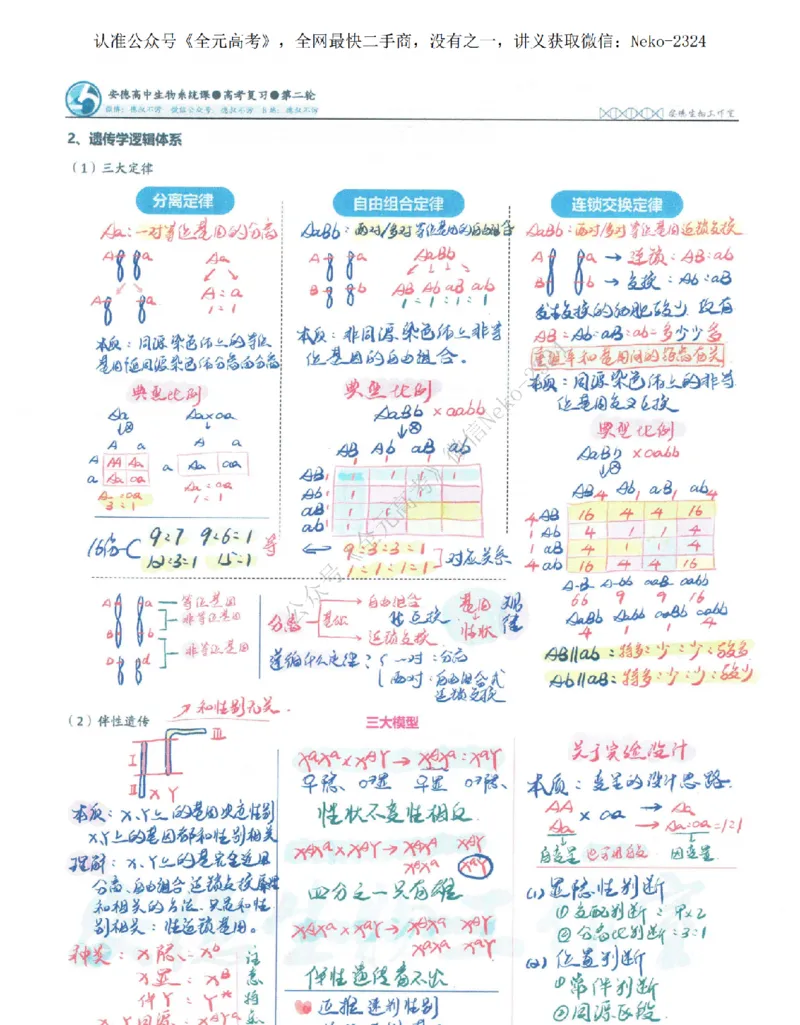 认准公众号《全元高考》，全网最快二手商，没有之一，讲义获取微信：Neko-2324
安德高中生物系统课●高考复习●第二轮
安德生物工作室
2、遗传学逻辑体系
（1）三大定律
分离定律
Aa：一对等位基因的分离
A a Aa
A a A : a
1 : 1
本质：同源染色体上的等位
基因随同源染色体分离而分离
典型比例
Aa Aa×aa
A a A a
A AA Aa a Aa aa
a Aa aa
A_:aa Aa:aa
3:1 1:1
自由组合定律
AaBb：两对/多对等位基因的自由组合
A a AaBb
B b AB Ab aB ab
1 : 1 : 1 : 1
本质：非同源染色体上非等
位基因的自由组合。
典型比例
AaBb × aabb
AB Ab aB ab
AB 1 1 1 1
Ab 1
aB 1
ab 1
16份 9:7 9:6:1 等
12:3:1 15:1
9:3:3:1
1:1:1:1 对应关系
连锁交换定律
AaBb：两对/多对等位基因连锁交换
A a → 连锁：AB:ab
B b → 交换：Ab:aB
发生交换的细胞较少 现有
AB:Ab:aB:ab=多少少多
重组率和基因间的距离有关
本质：同源染色体上的非等
位基因交叉互换
典型比例
AaBb × aabb
AB4 Ab1 aB1 ab4
4AB 16 4 4 16
1Ab 4 1 1 4
1aB 4 1 1 4
4ab 16 4 4 16
A-B- A-bb aaB- aabb
66 9 9 16
AaBb Aabb aaBb aabb
4 1 1 4
AB∥ab：特多:少:少:较多
Ab∥aB：特多:少:少:较少
A a 等位基因
B b 非等位基因
D d 非等位基因
分离 基础 自由组合
连锁交换
基因 规
性状 律
遵循什么定律？ 一对：分离
两对：自由组合或
连锁交换
（2）伴性遗传
和性别无关
I II III
X Y
本质：X、Y上的基因决定性别
X、Y上的基因都和性别相关
理解：X、Y上的基因完全适用
分离、自由组合、连锁交换原理
和相关的方法，只是和性
别相关：性连锁基因。
种类：X隐：Xb
X显：XB
伴Y：Y*
注
意
三大模型
XaXa×XAY→XAXa:XaY
♀隐、♂显 ♀显 ♂隐、
性状不变性相反
XAXA×XAY→XAXA XAY
XAXa XaY
四分之一只有雄
XAXa×XaY→XAXa XAY
XaXa XaY
伴性遗传看不出
关于实验设计
本质：变量的设计思路.
AA × aa → Aa
Aa → Aa:aa=1:1
自变量 因变量
(1) 显隐性判断
① 交配判断：9×2
② 分离比判断：3:1
(2) 位置判断
① 常伴判断
② 同源区段